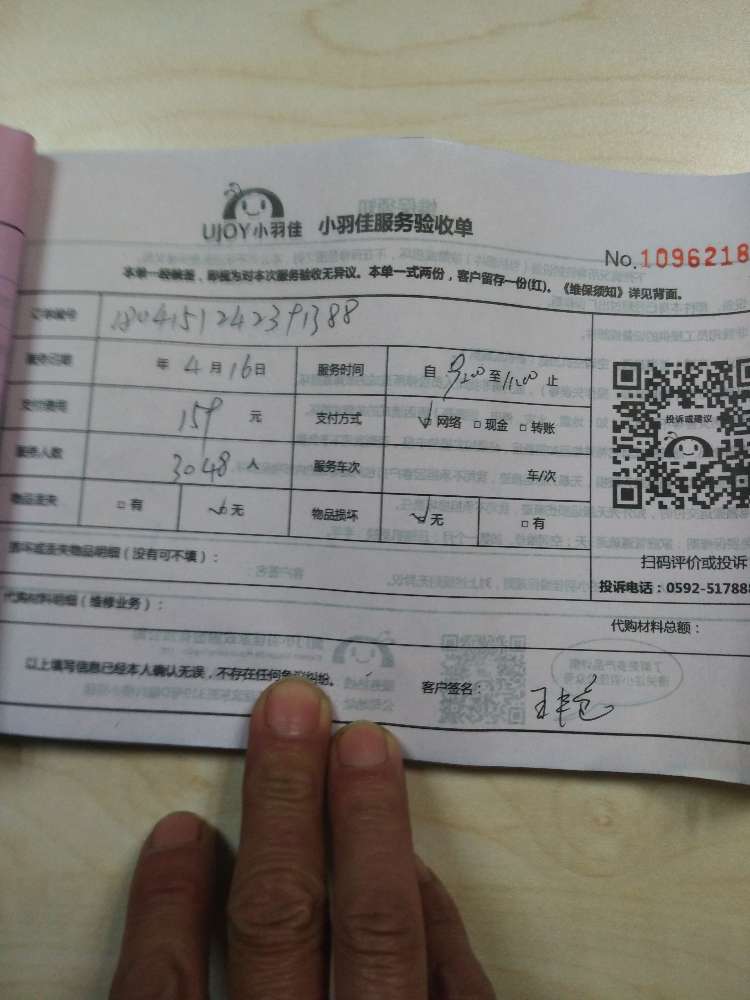 UJOY小羽佳 小羽佳服务验收单
No.1096218
本单一经签署，即视为对本次服务验收无异议。本单一式两份，客户留存一份(红)。《维保须知》详见背面。
订单编号 1804151242391388
服务日期 年 4 月 16 日 服务时间 自 9:00 至 11:00 止
支付费用 159 元 支付方式 网络 □ 现金 □ 转账
服务人数 3048 人 服务车次 车/次
物品丢失 □ 有 无 物品损坏 无 □ 有
投诉或建议
损坏或丢失物品明细（没有可不填）：
扫码评价或投诉
投诉电话：0592-517888
代购材料明细（维修业务）：
代购材料总额：
以上填写信息已经本人确认无误，不存在任何争议纠纷。
客户签名：